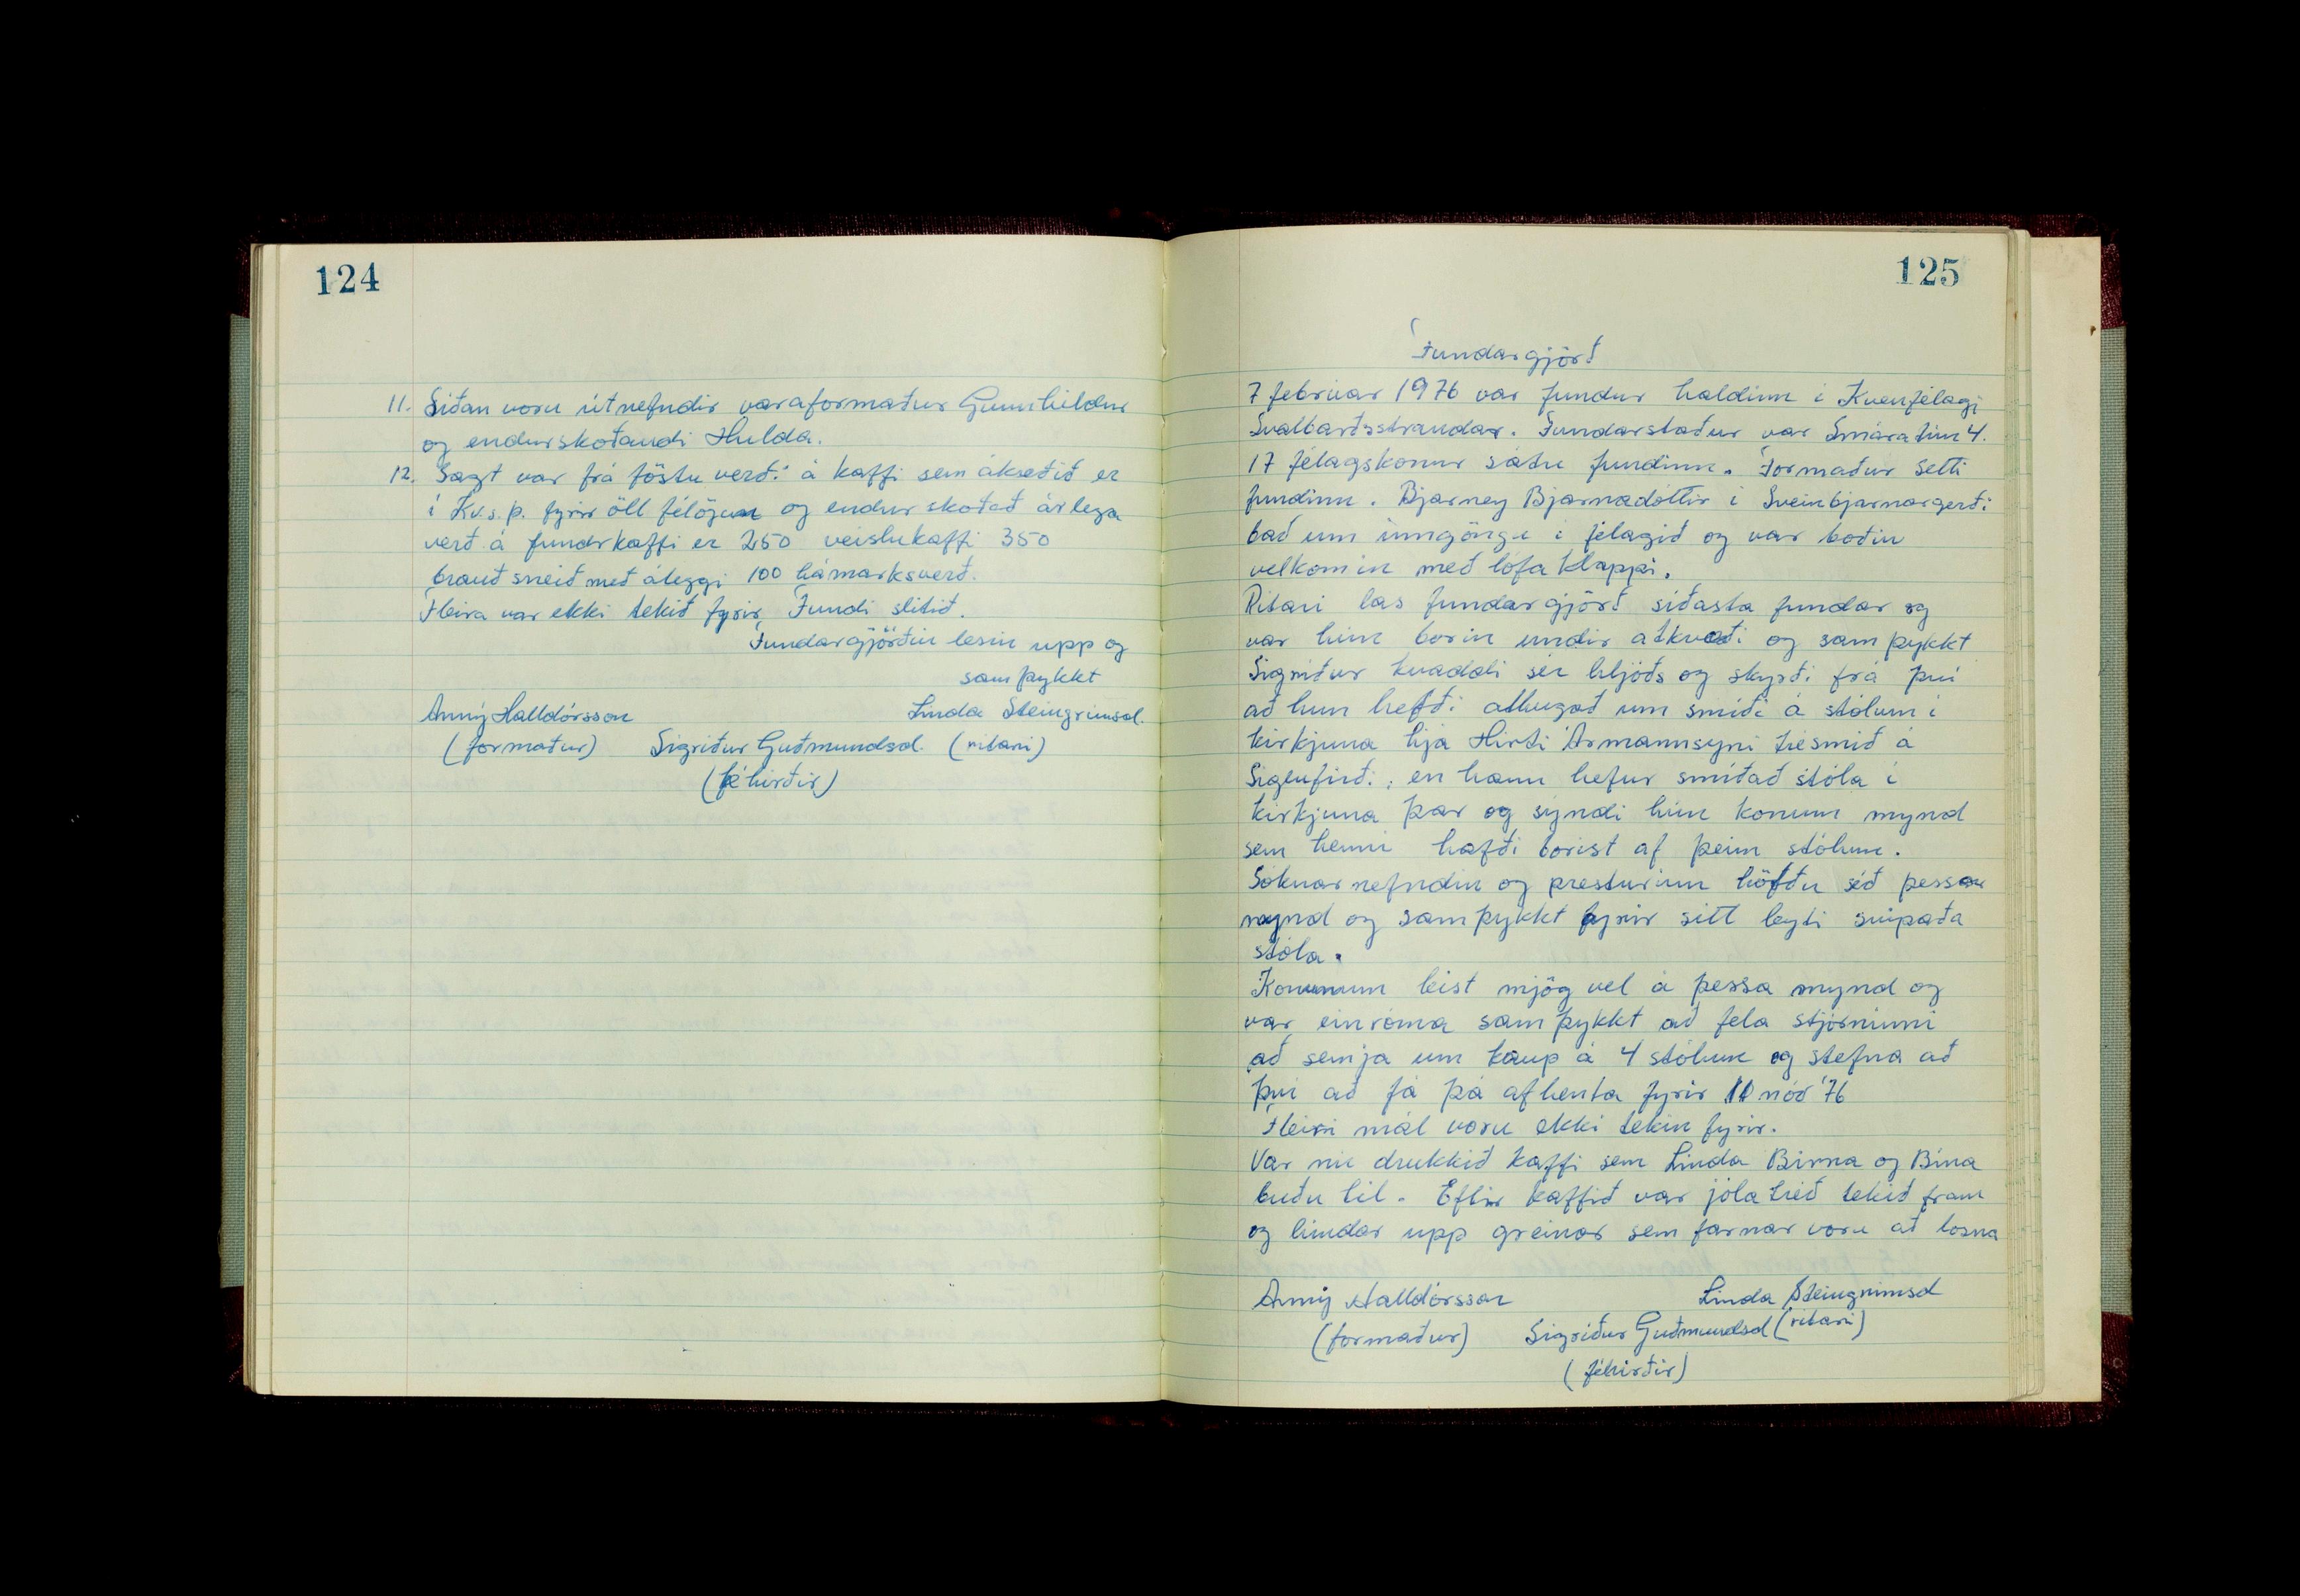 124
11. Siðan voru útnefndir varaformaður Gunnhildur
og endurskoðandi Hulda.
12. Sagt var frá föstu verði á kaffi sem ákseðið er
í Kv.s.þ. fyrir öll félögum og endurskoðað árlega
verð á fundrkaffi er 250 veislukaffi 350
brauðsneið með áleggi 100 hámarksverð.
Fleira var ekki tekið fyrir, Fundi slitið.
Fundargjörðin lesin upp og
samþykkt
Anný Halldórsson Linda Steingrímsd.
(formaður) Sigríður Guðmundsd. (ritari)
(féhirðir)
125
Fundargjörð
7 februar 1976 var fundur haldinn í Kvenfélagi
Svalbarðsstrandar. Fundarstaður var Smáratún 4.
17 félagskonur sátu fundinn. Formaður setti
fundinn. Bjarney Bjarnadóttir í Sveinbjarnargerði
bað um inngöngu í félagið og var boðin
velkomin með lófaklappi.
Ritari las fundargjörð síðasta fundar og
var hún borin undir atkvæði og samþykkt
Sigríður kvaddi sér hljóðs og skyrði frá því
að hun hefði athugað um smíði á stólum í
kirkjuna hjá Hirti Ármannsyni trésmið á
Siglufirði; en hann hefur smíðað stóla í
kirkjuna þar og syndi hún konum mynd
sem henni hafði borist af þeim stólum.
Sóknarnefndin og presturinn höfðu séð þessar
mynd og samþykkt fyrir sitt leyti svipaða
stóla.
Konunum leist mjög vel á þessa mynd og
var einróma samþykkt að fela stjórninni
að semja um kaup á 4 stólum og stefna að
því að fá þá afhenta fyrir 10 nóv '76
Fleiri mál voru ekki tekin fyrir.
Var nú drukkið kaffi sem Linda Birna og Bína
buðu til. Eftir kaffið var jólatréð tekið fram
og bundar upp greinar sem farnar voru að losna
Anný Halldórsson Linda Steingrimsd
(formaður) Sigríður Guðmundsd (ritari)
(féhirðir)